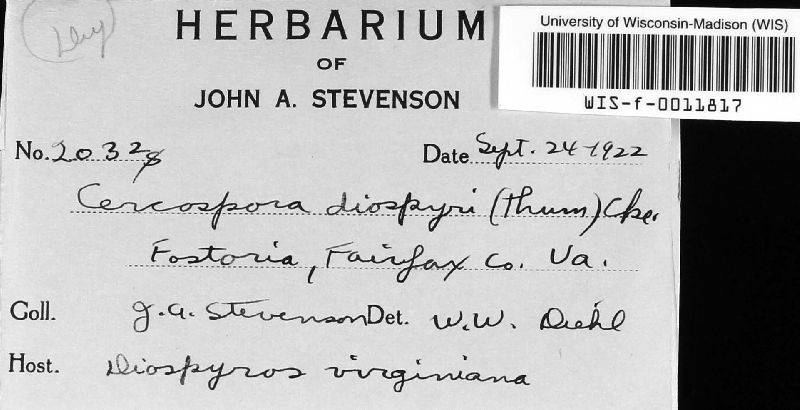 HERBARIUM
OF
JOHN A. STEVENSON
University of Wisconsin-Madison (WIS)
WIS-f-0011817
No. Date Sept. 24-1922
Cercospora diospyri (Thum) Cke.
Fostoria, Fairfax Co. Va.
Coll. J.A. Stevenson Det. W.W. Diehl
Host. Diospyros virginiana